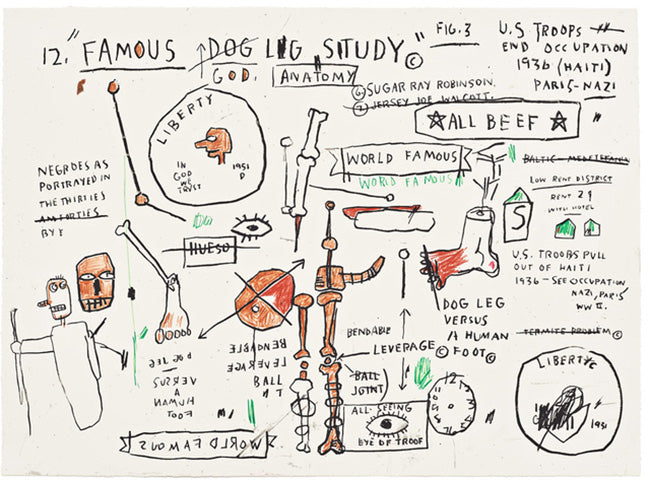 12. "FAMOUS DOG LEG STUDY" ©
GOD.
ANATOMY
FIG. 3
U.S TROOPS
END OCCUPATION
1936 (HAITI)
PARIS-NAZI
SUGAR RAY ROBINSON.
JERSEY JOE WALCOTT.
☆ALL BEEF☆
LIBERTY
IN
GOD
WE
TRUST
1951
D
NEGROES AS
PORTRAYED IN
THE THIRTIES
WORLD FAMOUS
WORLD FAMOUS
LOW RENT DISTRICT
RENT
WITH HOTEL
S
HUESO
U.S. TROOBS PULL
OUT OF HAITI
1936 - SEE OCCUPATION
NAZI, PARIS
WW II.
DOG LEG
VERSUS
A HUMAN
© FOOT ©
TERMITE PROBLEM ©
BENDABLE
LEVERAGE
BENDABLE
LEVERAGE
BALL
BALL
JOINT
DOG LEG
VERSUS
A
HUMAN
FOOT
ALL-SEEING
EYE OF TROOF
12
WORLD FAMOUS
LIBERTY
1951